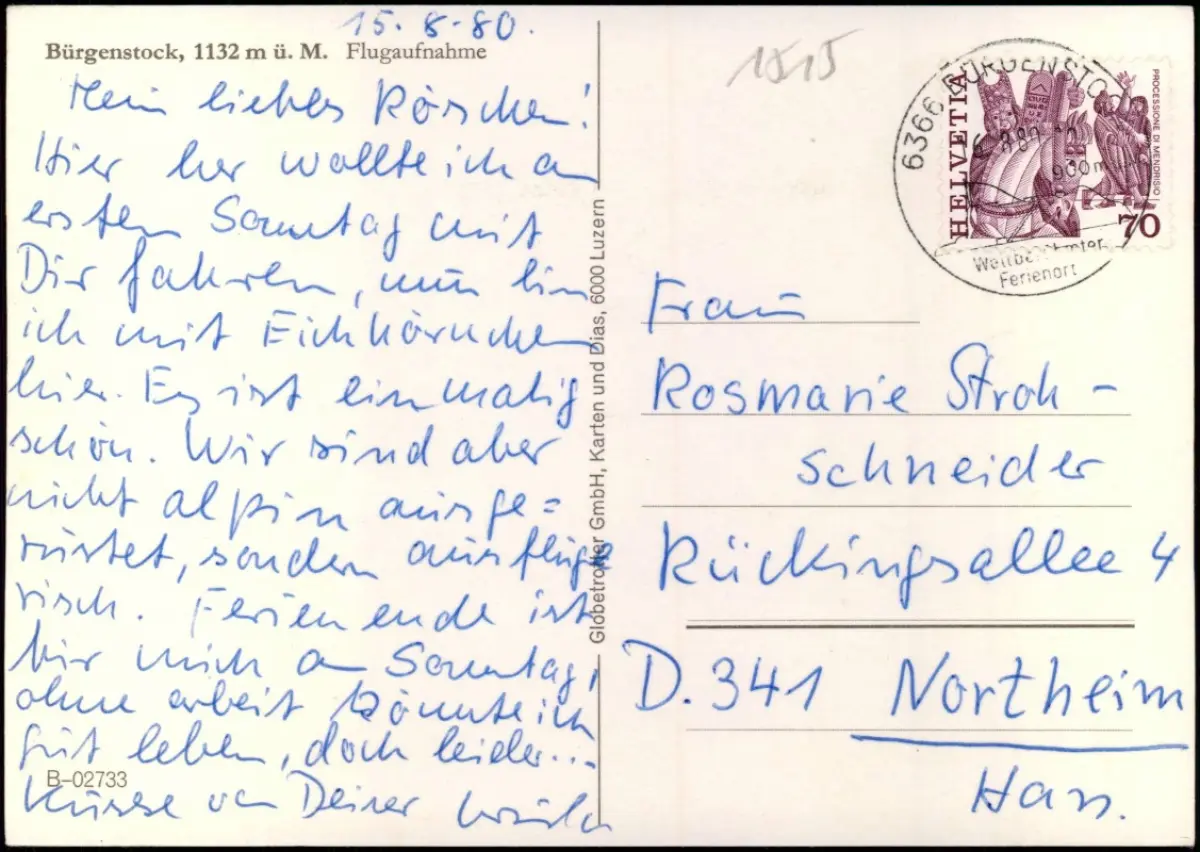 15.8.80.
Bürgenstock, 1132 m ü. M. Flugaufnahme
Mein liebes Röschen!
Hier her wollte ich am
ersten Sonntag mit
Dir fahren, nun bin
ich mit Eichhörnchen
hier. Es ist einmalig
schön. Wir sind aber
nicht alpin ausge=
rüstet, sondern ausflüge
risch. Ferienende ist
für mich am Sonntag,
ohne arbeit könnte ich
gut leben, doch leider...
B-02733
Küsse von Deiner
Globetrotter GmbH, Karten und Dias, 6000 Luzern
1515
6366 BÜRGENSTOCK
900 m
Weltberühmter
Ferienort
HELVETIA
PROCESSIONE DI MENDRISIO
70
Frau
Rosmarie Stroh-
schneider
Rückingsallee 4
D.341 Northeim
Han.